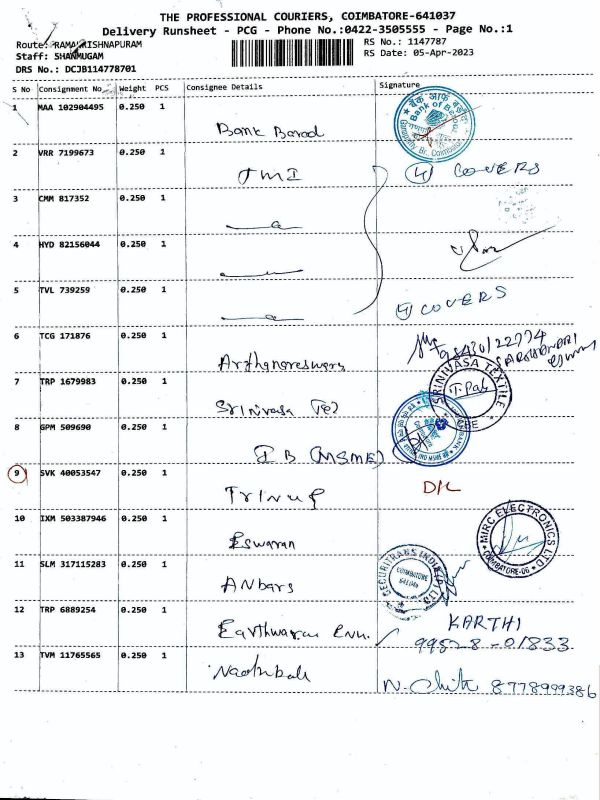 THE PROFESSIONAL COURIERS, COIMBATORE-641037
Delivery Runsheet - PCG - Phone No.:0422-3505555 - Page No.:1
Route: RAMAKRISHNAPURAM
RS No.: 1147787
Staff: SHANMUGAM
RS Date: 05-Apr-2023
DRS No.: DCJB114778701
S No Consignment No Weight PCS Consignee Details Signature
1 MAA 102904495 0.250 1
Bank Barod
2 VRR 7199673 0.250 1
JMI
4 COVERS
3 CMM 817352 0.250 1
4 HYD 82156044 0.250 1
5 TVL 739259 0.250 1
4 COVERS
6 TCG 171876 0.250 1
7 TRP 1679983 0.250 1
Srinivasa Tex
SRINIVASA TEXTILE
8 GPM 509690 0.250 1
I B (MSME)
9 SVK 40053547 0.250 1
D/L
10 IXM 503387946 0.250 1
Eswaran
MIRC ELECTRONICS LTD
COIMBATORE-06
11 SLM 317115283 0.250 1
Anbars
SECURITRANS INDIA (P) LTD
COIMBATORE
12 TRP 6889254 0.250 1
KARTHI
99528-01833
13 TVM 11765565 0.250 1
8778999386